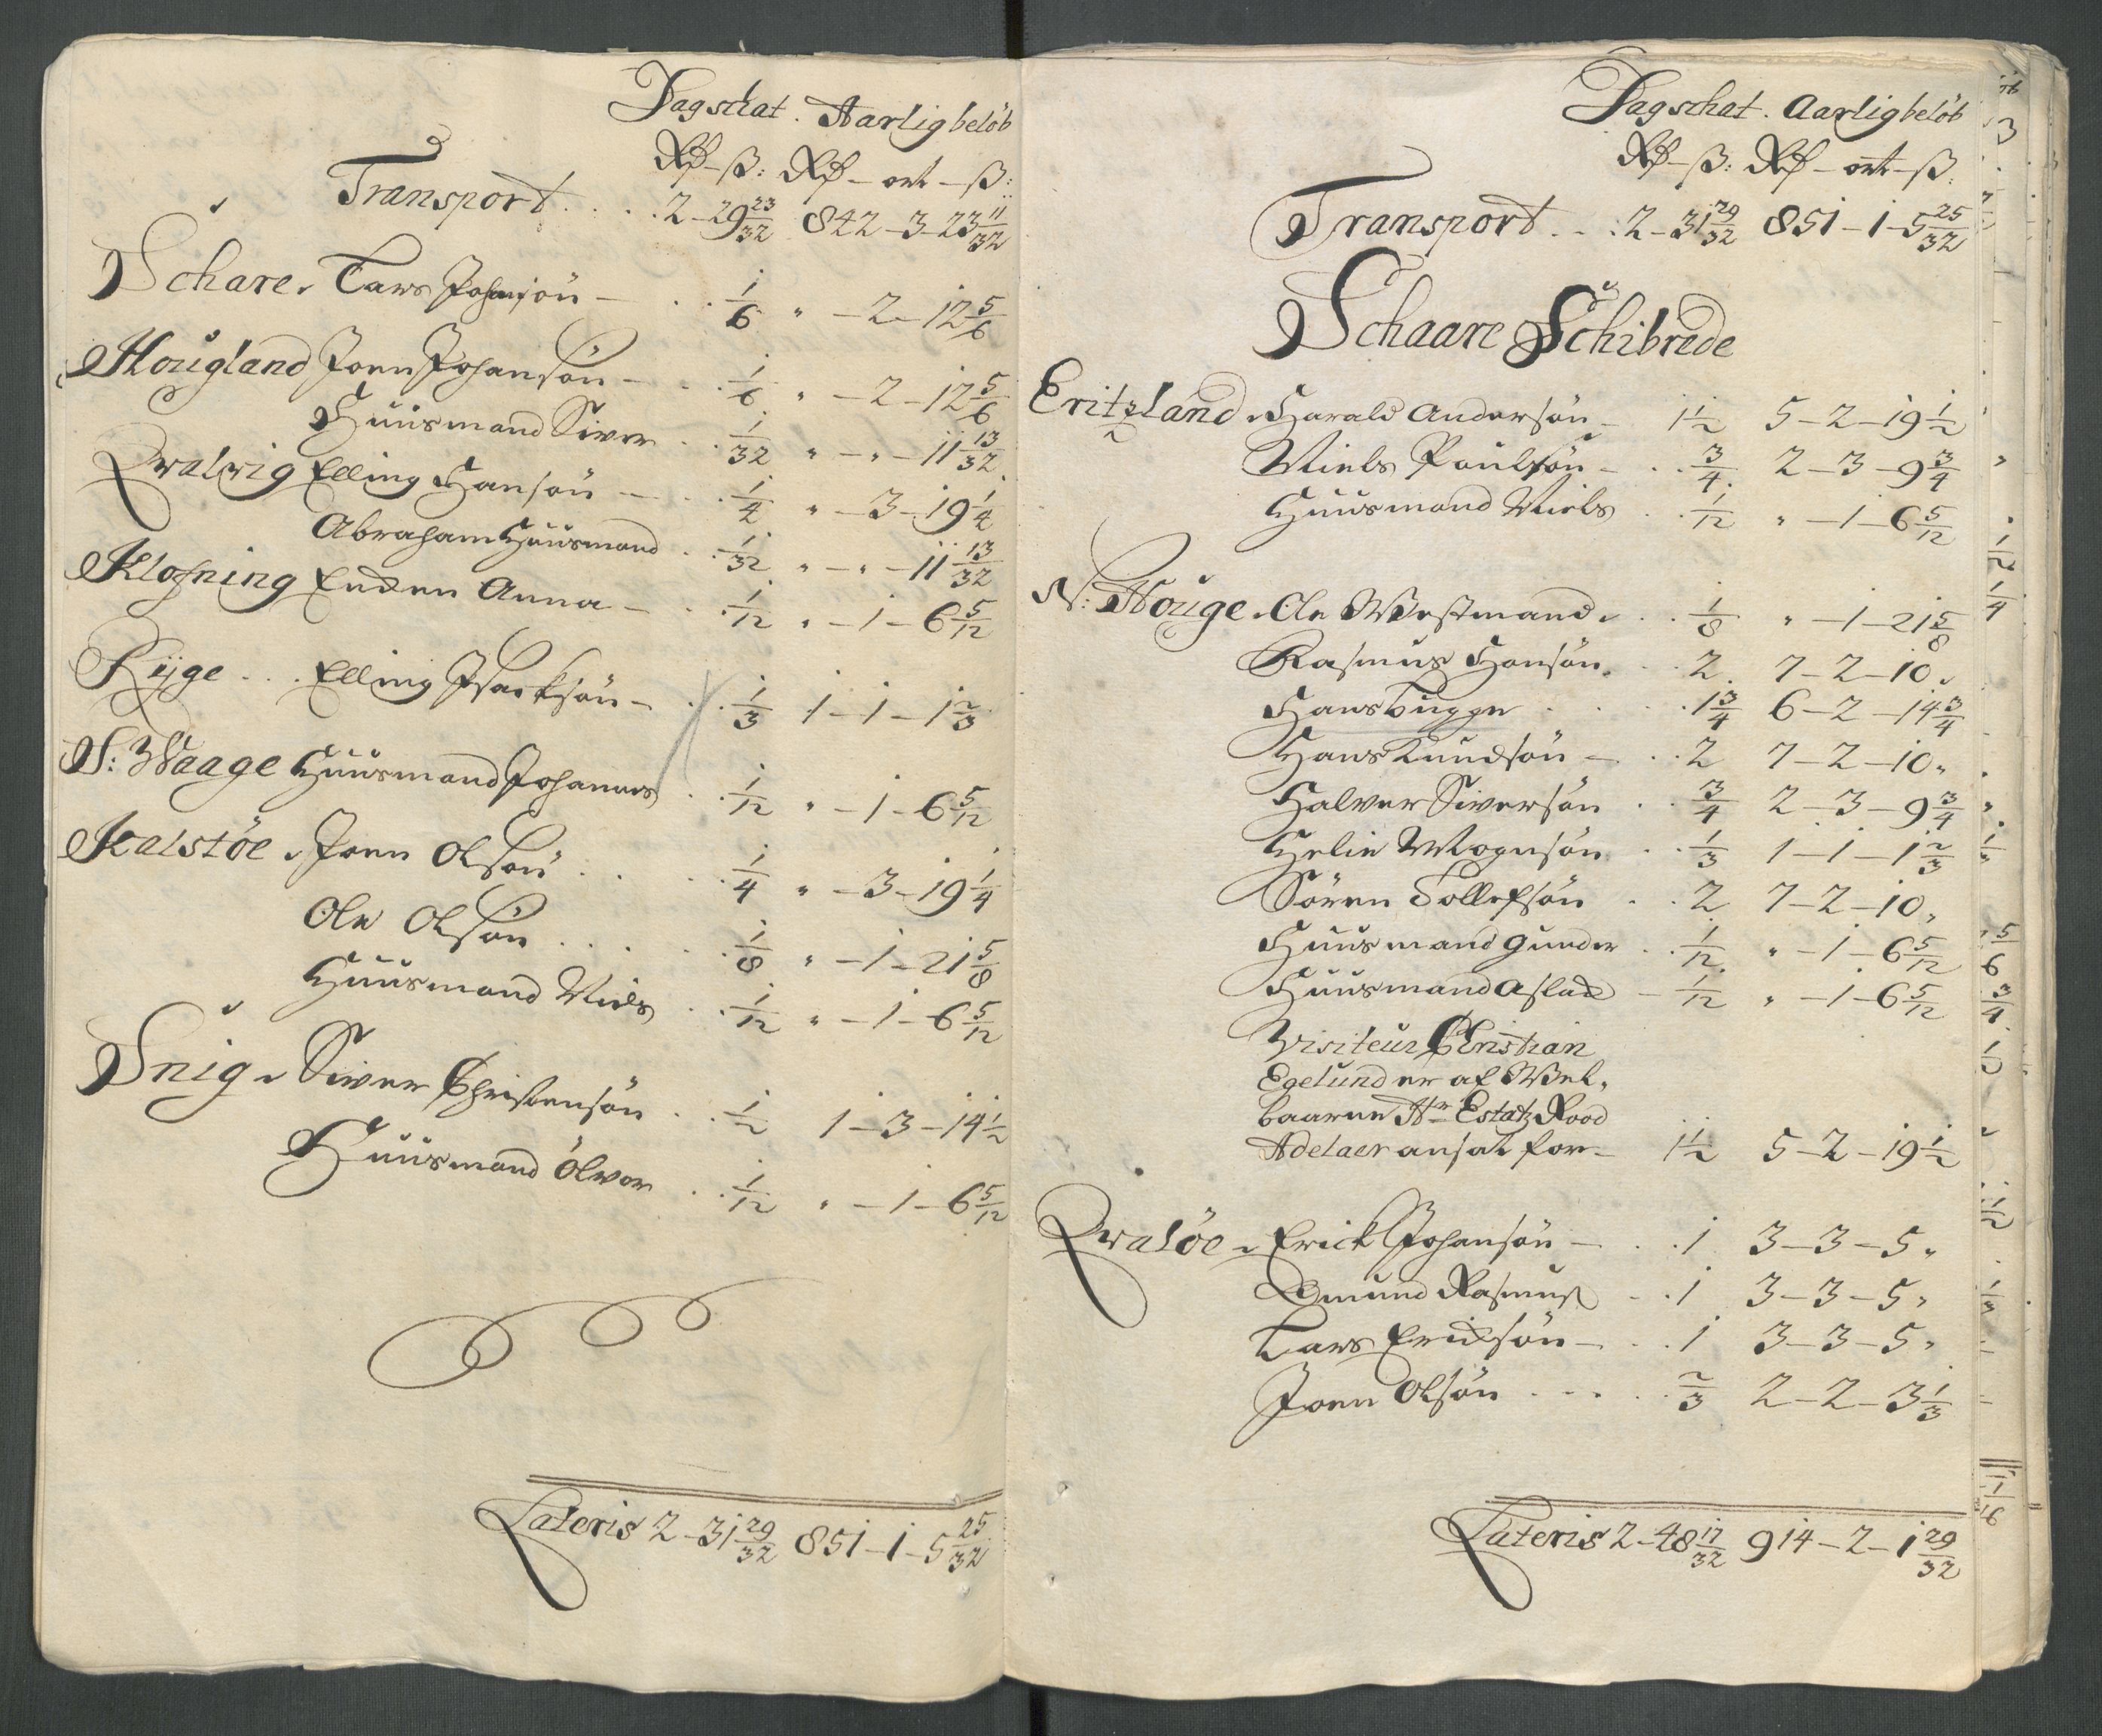 Dagschat. Aarlig beløb
Rd - ß: Rd - ort - ß:
Transport .... 2 - 29 23/32 842 - 3 - 23 11/32
Schare. Lars Johansön - .. 1/6 " - 2 - 12 5/6
Hougland Joen Johansön - .. 1/6 " - 2 - 12 5/6
Huusmand Siver .. 1/32 " - " - 11 13/32
Qvalvig Elling Hansön - .. 1/4 " - 3 - 19 1/4
Abraham Huusmand .. 1/32 " - " - 11 13/32
Klofning Encken Anna - .. 1/12 " - 1 - 6 5/12
Ryge ... Elling Isacksön - .. 1/3 1 - 1 - 1 2/3
S: Waage Huusmand Johannes .. 1/12 " - 1 - 6 5/12
Kalstöe. Joen Olsön .. 1/4 " - 3 - 19 1/4
Ole Olsön .... 1/8 " - 1 - 21 5/8
Huusmand Niels .. 1/12 " - 1 - 6 5/12
Snig. Siver Christensön .. 1/2 1 - 3 - 14 1/2
Huusmand Olver .. 1/12 " - 1 - 6 5/12
Lateris 2 - 31 29/32 851 - 1 - 5 25/32
Dagschat. Aarlig beløb
Rd - ß: Rd - ort - ß:
Transport .. 2 - 31 29/32 851 - 1 - 5 25/32
Schaare Schibrede
Eritzland. Harald Andersön - 1 1/2 5 - 2 - 19 1/2
Niels Poulsön - .. 3/4 2 - 3 - 9 3/4
Huusmand Niels .. 1/12 " - 1 - 6 5/12
N: Houge. Ole Westmand. .. 1/8 " - 1 - 21 5/8
Rasmus Hansön .. 2 7 - 2 - 10 "
Hans Bugge .... 1 3/4 6 - 2 - 14 3/4
Hans Knudsön - .. 2 7 - 2 - 10 "
Halver Siversön .. 3/4 2 - 3 - 9 3/4
Helie Mognsön .. 1/3 1 - 1 - 1 2/3
Sören Tollefsön .. 2 7 - 2 - 10 "
Huusmand Gunder .. 1/12 " - 1 - 6 5/12
Huusmand Aslack - 1/12 " - 1 - 6 5/12
Visiteur Christian
Egelund er af Wel.
baarne Hr Estatz Raad
Adelaer ansat for - 1 1/2 5 - 2 - 19 1/2
Qvalöe. Erick Johansön - .. 1 3 - 3 - 5 "
Omund Rasmuß - .. 1 3 - 3 - 5 "
Lars Ericksön - .. 1 3 - 3 - 5 "
Joen Olsön .... 2/3 2 - 2 - 3 1/3
Lateris 2 - 48 17/32 914 - 2 - 1 29/32